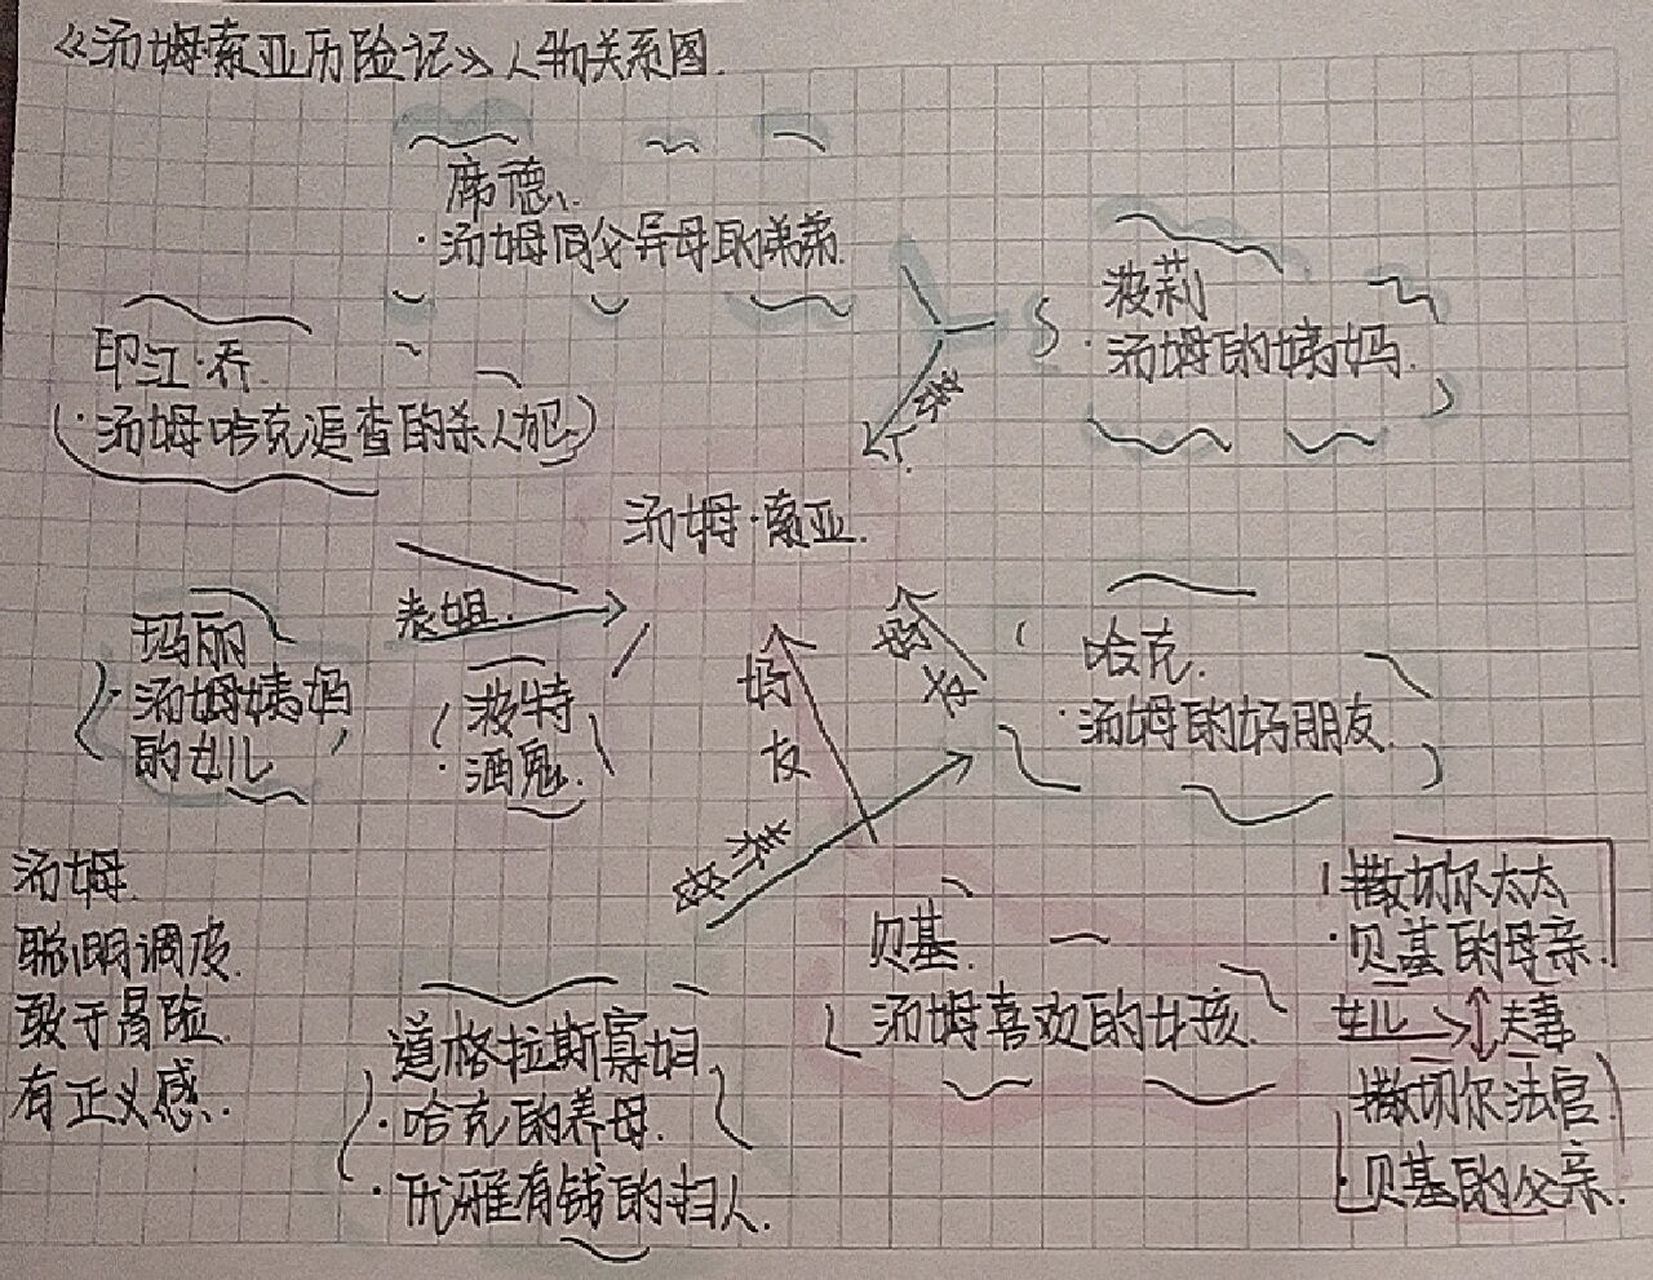 《汤姆·索亚历险记》人物关系图.
席德.
·汤姆同父异母的弟弟.
波莉
·汤姆的姨妈.
印江·乔.
·汤姆哈克追查的杀人犯.
汤姆·索亚.
表姐.
玛丽
·汤姆姨妈
的女儿
波特
·酒鬼.
好
友
好
友
哈克.
·汤姆的好朋友.
养母
汤姆.
聪明调皮.
敢于冒险.
有正义感.
贝基.
汤姆喜欢的女孩.
撒切尔太太
·贝基的母亲.
女儿
夫妻
撒切尔法官
·贝基的父亲.
道格拉斯寡妇
·哈克的养母.
·优雅有钱的妇人.